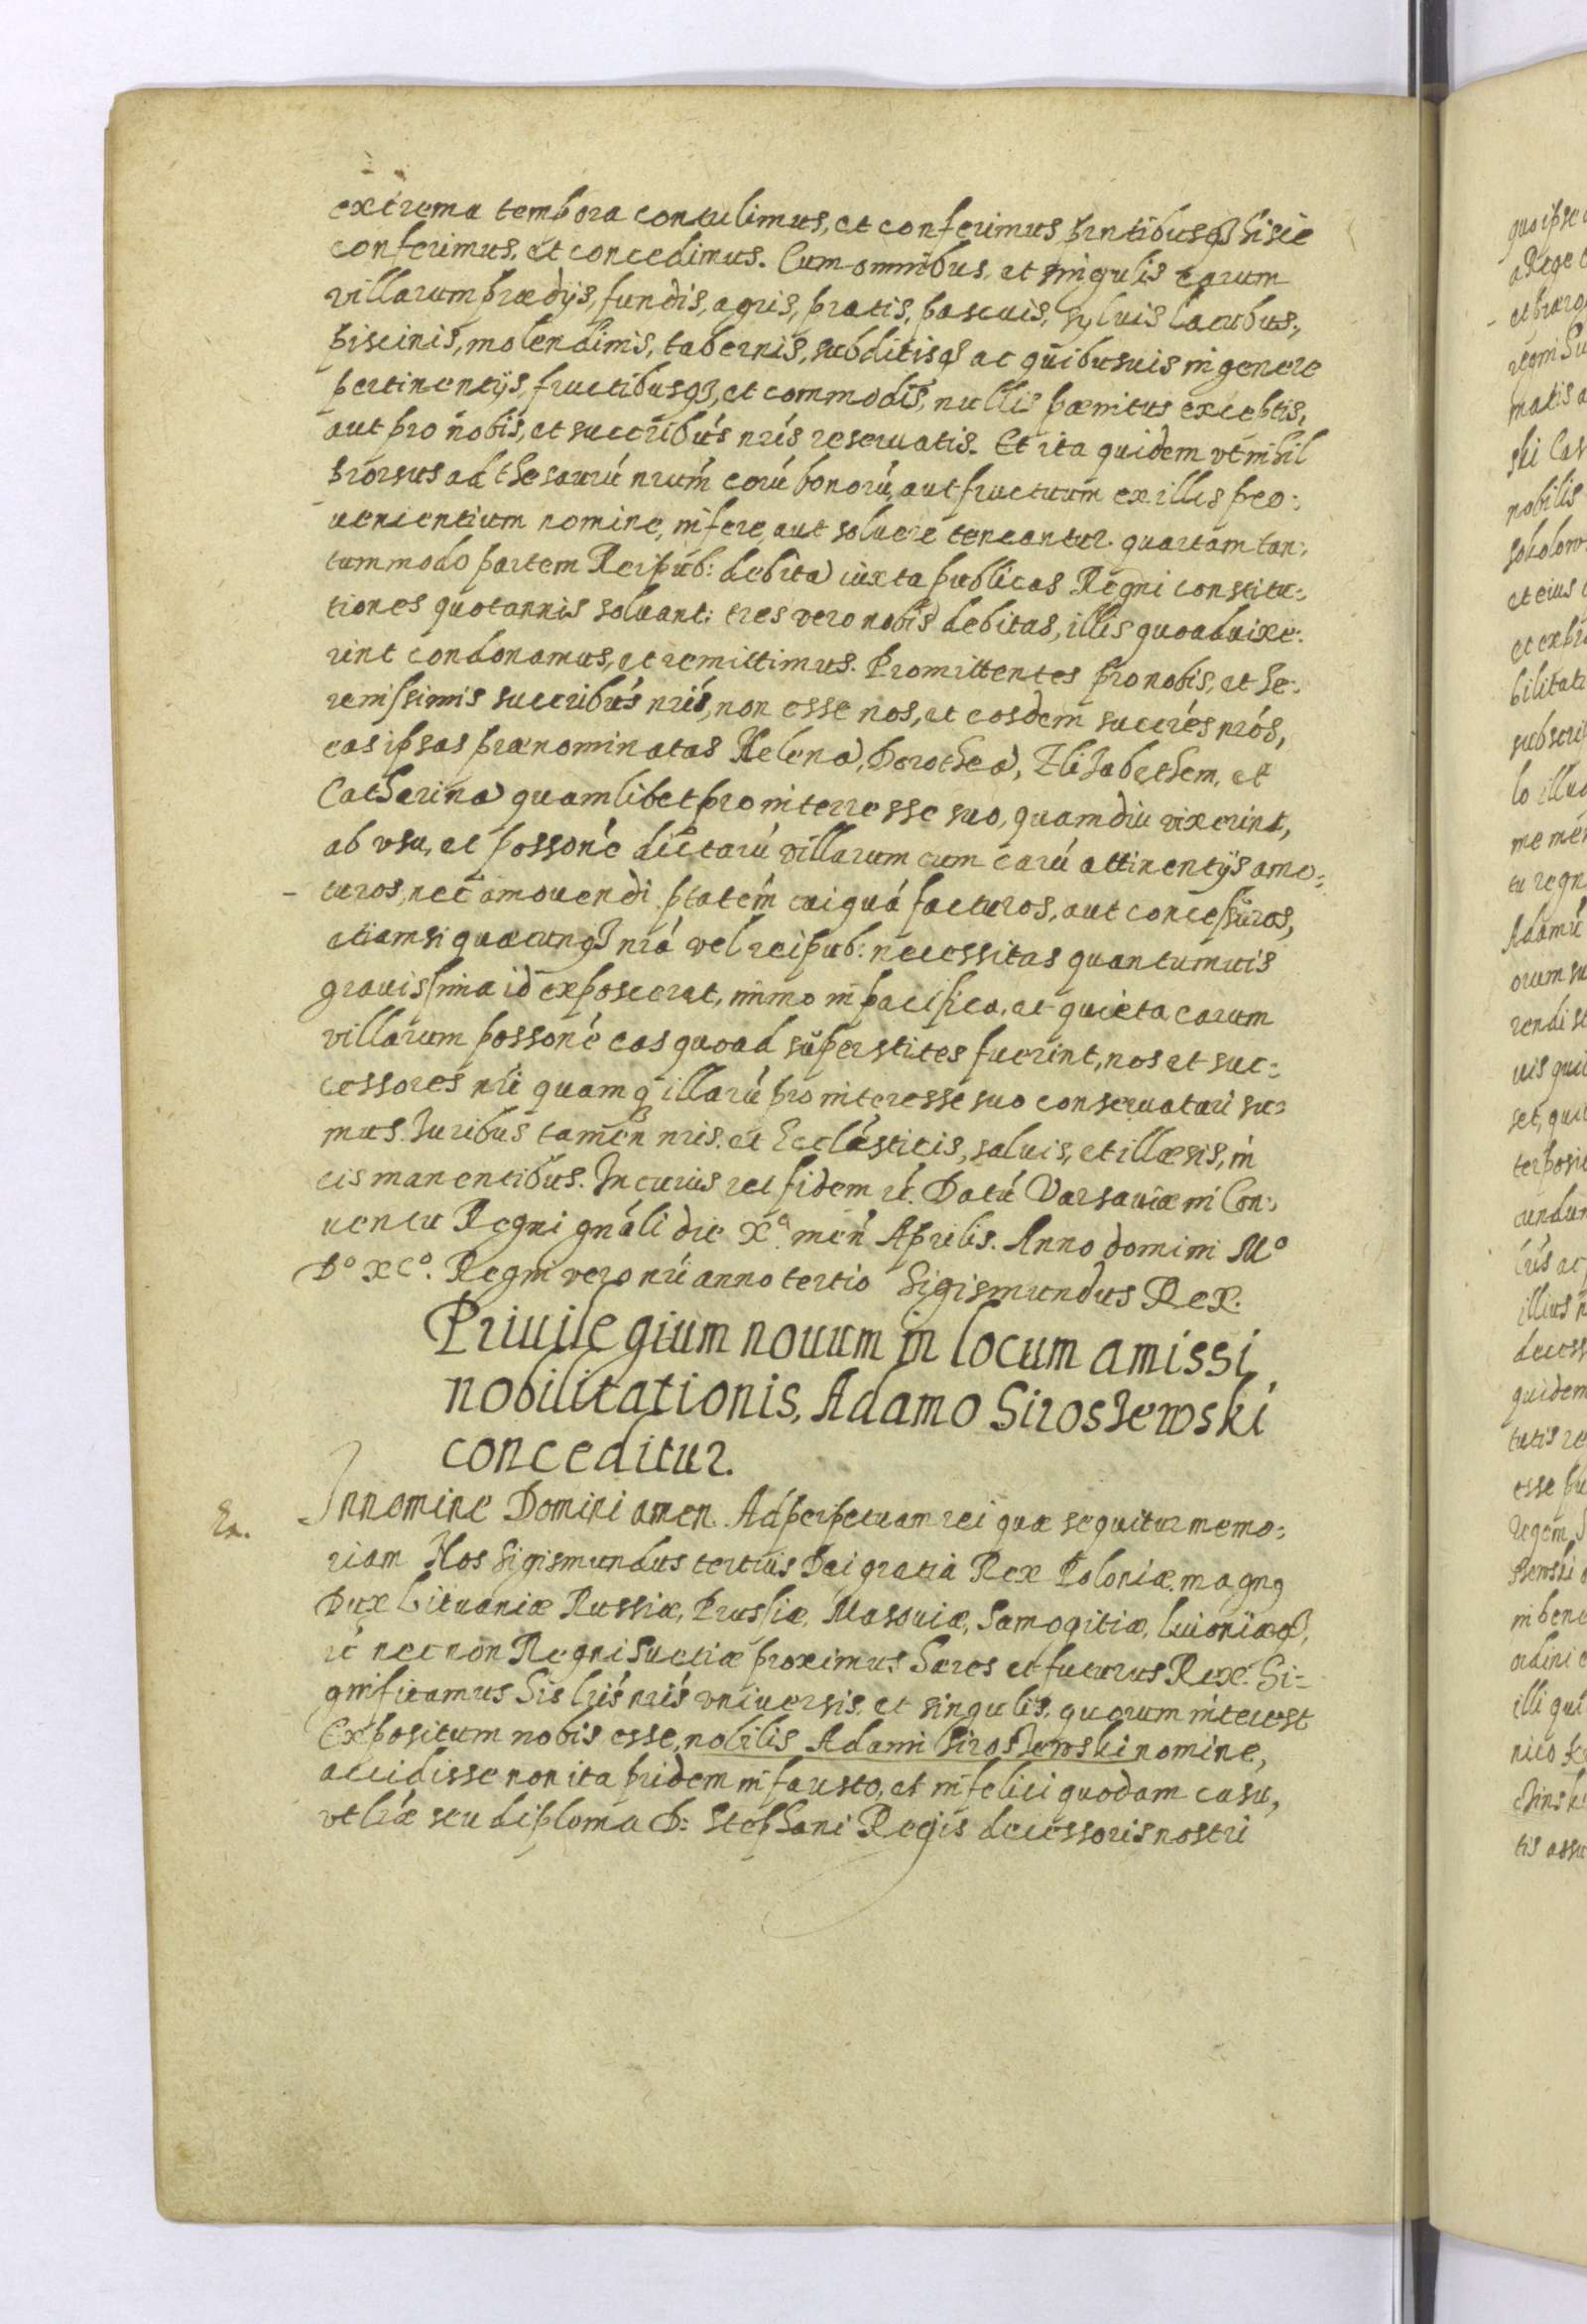 extrema tempora contulimus, et conferimus prntibusq3 hisce
conferimus, et concedimus. Cum omnibus, et singulis earum
villarum prædijs, fundis, agris, pratis, pascuis, syluis lacubus,
piscinis, molendinis, tabernis, subditisq3 ac quibusuis in genere
pertinentijs, fructibusq3, et commodis, nullis pænitus exceptis,
aut pro nobis, et succribús nrís reseruatis. Et ita quidem vt nihil
prorsus ad thesaurú nrúm eorú bonorú, aut fructuum ex illis pro:
uenientium nomine, inferre, aut soluere teneantur. quartam tan:
tummodo partem Reipub: debita iuxta publicas Regni constitu:
tiones quotannis soluant: tres vero nobis debitas, illis quoad uixe:
rint condonamus, et remittimus. Promittentes pro nobis, et Se:
renissimis succribús nrís, non esse nos, et eosdem succrés nrós,
eas ipsas prænominatas Helena, Dorothea, Elizabethem, et
Catharina quamlibet pro interresse suo, quamdiu vixerint,
ab vsu, et possoné dictarú villarum cum earú attinentijs amo:
turos, nec amouendi ptatém cuiquá facturos, aut concessuros,
etiamsi quæcunq3 nrá vel reipub: necessitas quantumuis
grauissima id exposceret, immo in pacifica, et quieta earum
villarum possoné eas quoad superstites fuerint, nos et suc:
cessores nrí quamq3 illarú pro interesse suo conseruaturi su:
mus. Iuribus tamen nris. et Ecclésticis, saluis, et illæsis, in
eis manentibus. In cuius rei fidem ré. Datú Varsauiæ in Con:
uentu Regni gnáli die Xa. mén Aprilis. Anno domini Mo
Do XCo. Regni vero nrí anno tertio Sigismundus Rex.
Priuilegium nouum in locum amissi
nobilitationis, Adamo Siroszewski
conceditur.
Ex. In nomine Domini amen. Ad perpetuam rei quæ sequitur memo:
riam Nos Sigismundus tertius Dei gratia Rex Poloniæ. magnq
Dux Lituaniæ Russiæ, Prussiæ, Masouiæ, Samogitiæ, Liuoniæq3,
ré necnon Regni Suetiæ proximus hæres et futurus Rex. Si-
gnificamus his lrís nrís vniuersis. et singulis, quorum interest
Expositum nobis esse, nobilis Adami Siroszewski nomine,
accidisse non ita pridem infausto, et infelici quodam casu,
vt lræ seu diploma D: Stephani Regis decessoris nostri